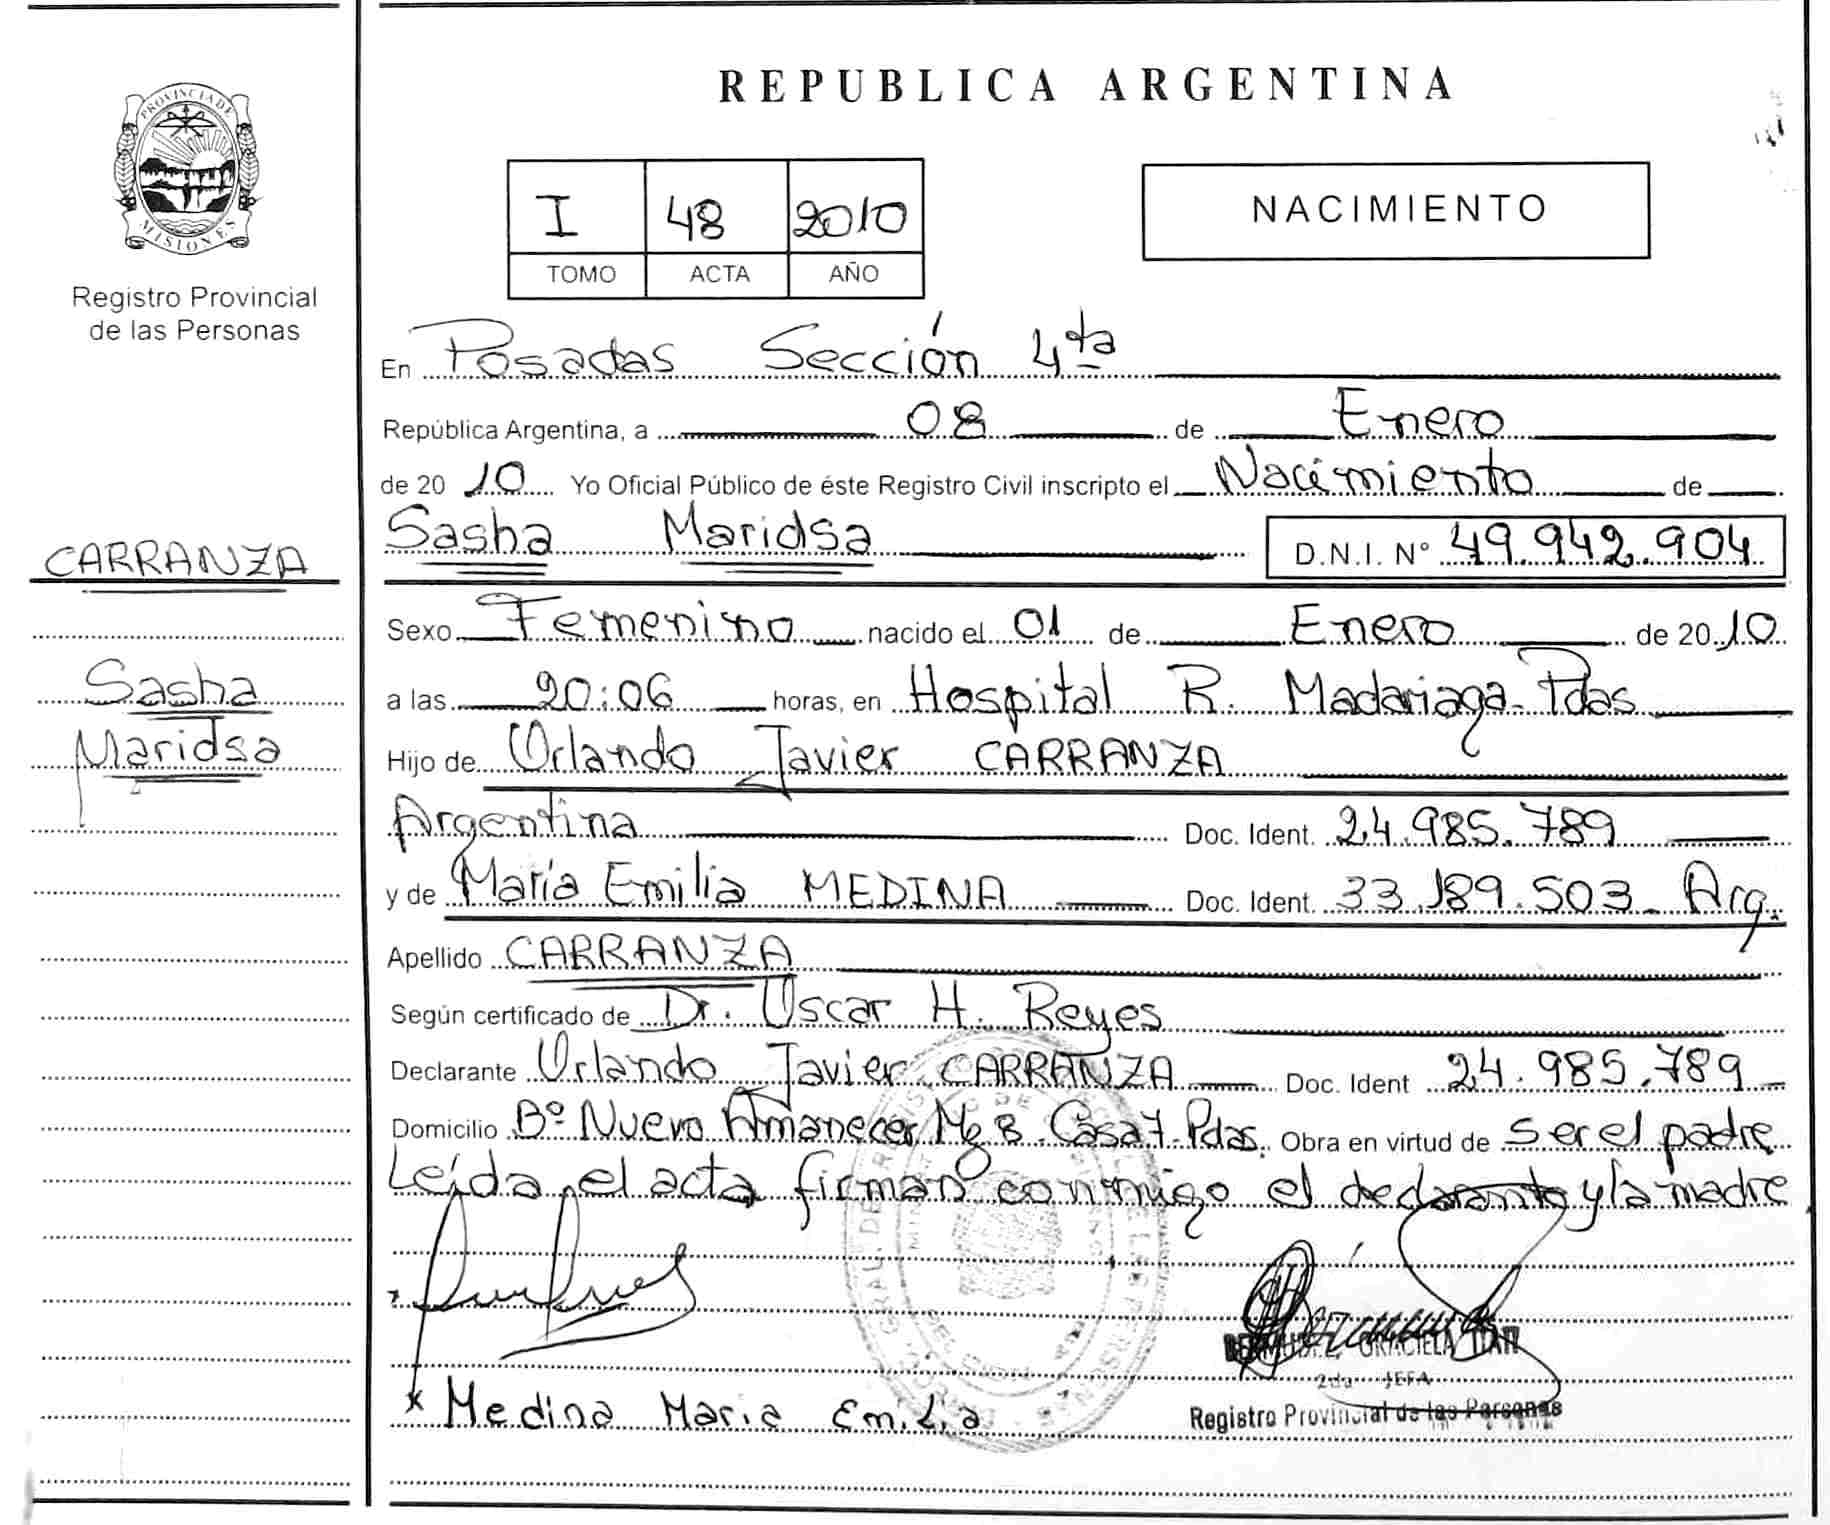 REPUBLICA ARGENTINA
PROVINCIA DE
MISIONES
Registro Provincial
de las Personas
I 48 2010
TOMO ACTA AÑO
NACIMIENTO
En Posadas Sección 4ta
República Argentina, a 08 de Enero
de 2010 Yo Oficial Público de éste Registro Civil inscripto el Nacimiento de
Sasha Maridsa D.N.I. Nº 49.942.904
CARRANZA
Sasha
Maridsa
Sexo Femenino nacido el 01 de Enero de 2010
a las 20:06 horas, en Hospital R. Madariaga-Pdas
Hijo de Orlando Javier CARRANZA
Argentina Doc. Ident. 24.985.789
y de María Emilia MEDINA Doc. Ident. 33.189.503- Arg.
Apellido CARRANZA
Según certificado de Dr. Oscar H. Reyes
Declarante Orlando Javier CARRANZA Doc. Ident 24.985.789
Domicilio Bº Nuevo Amanecer Mz 8 Casa 7-Pdas. Obra en virtud de ser el padre
Leída el acta firman conmigo el declarante y la madre
GRACIELA
2da JEFA
x Medina Maria Emilia
Registro Provincial de las Personas